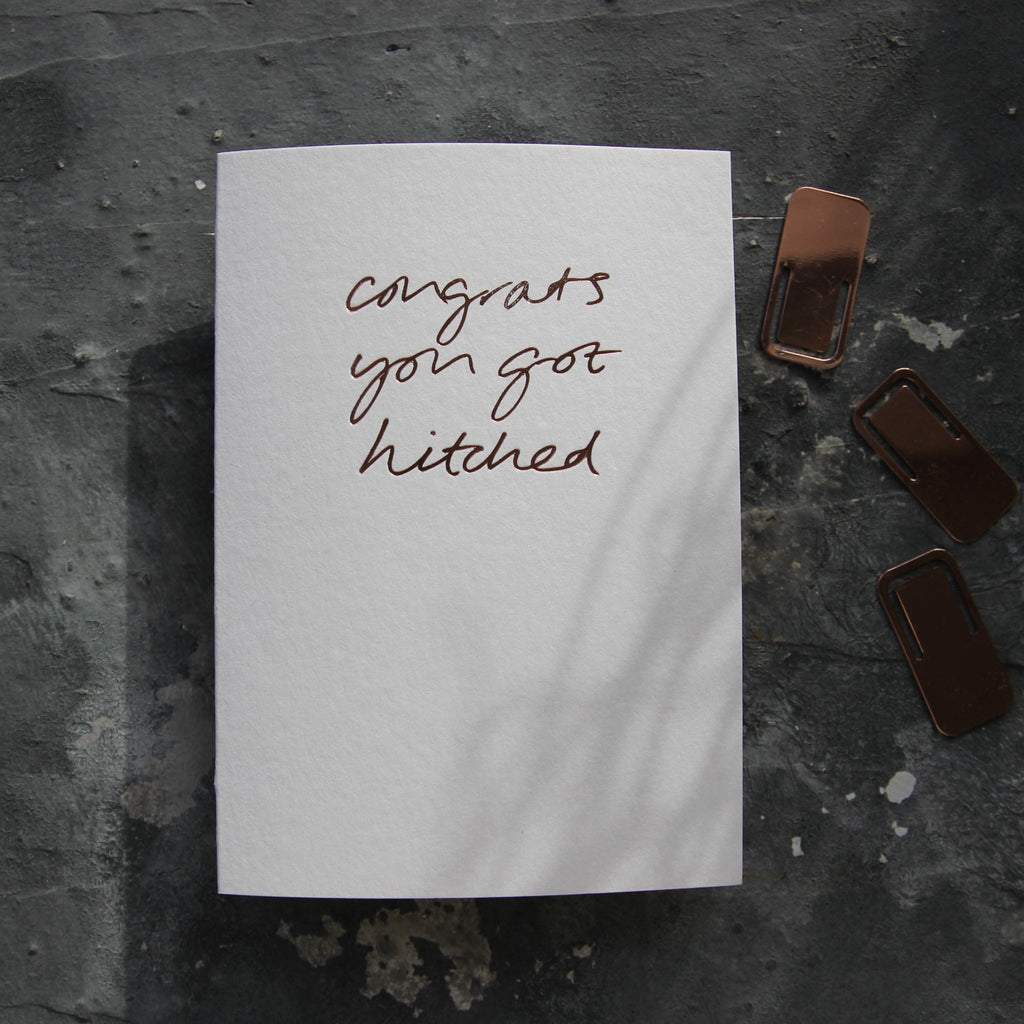 congrats
you got
hitched